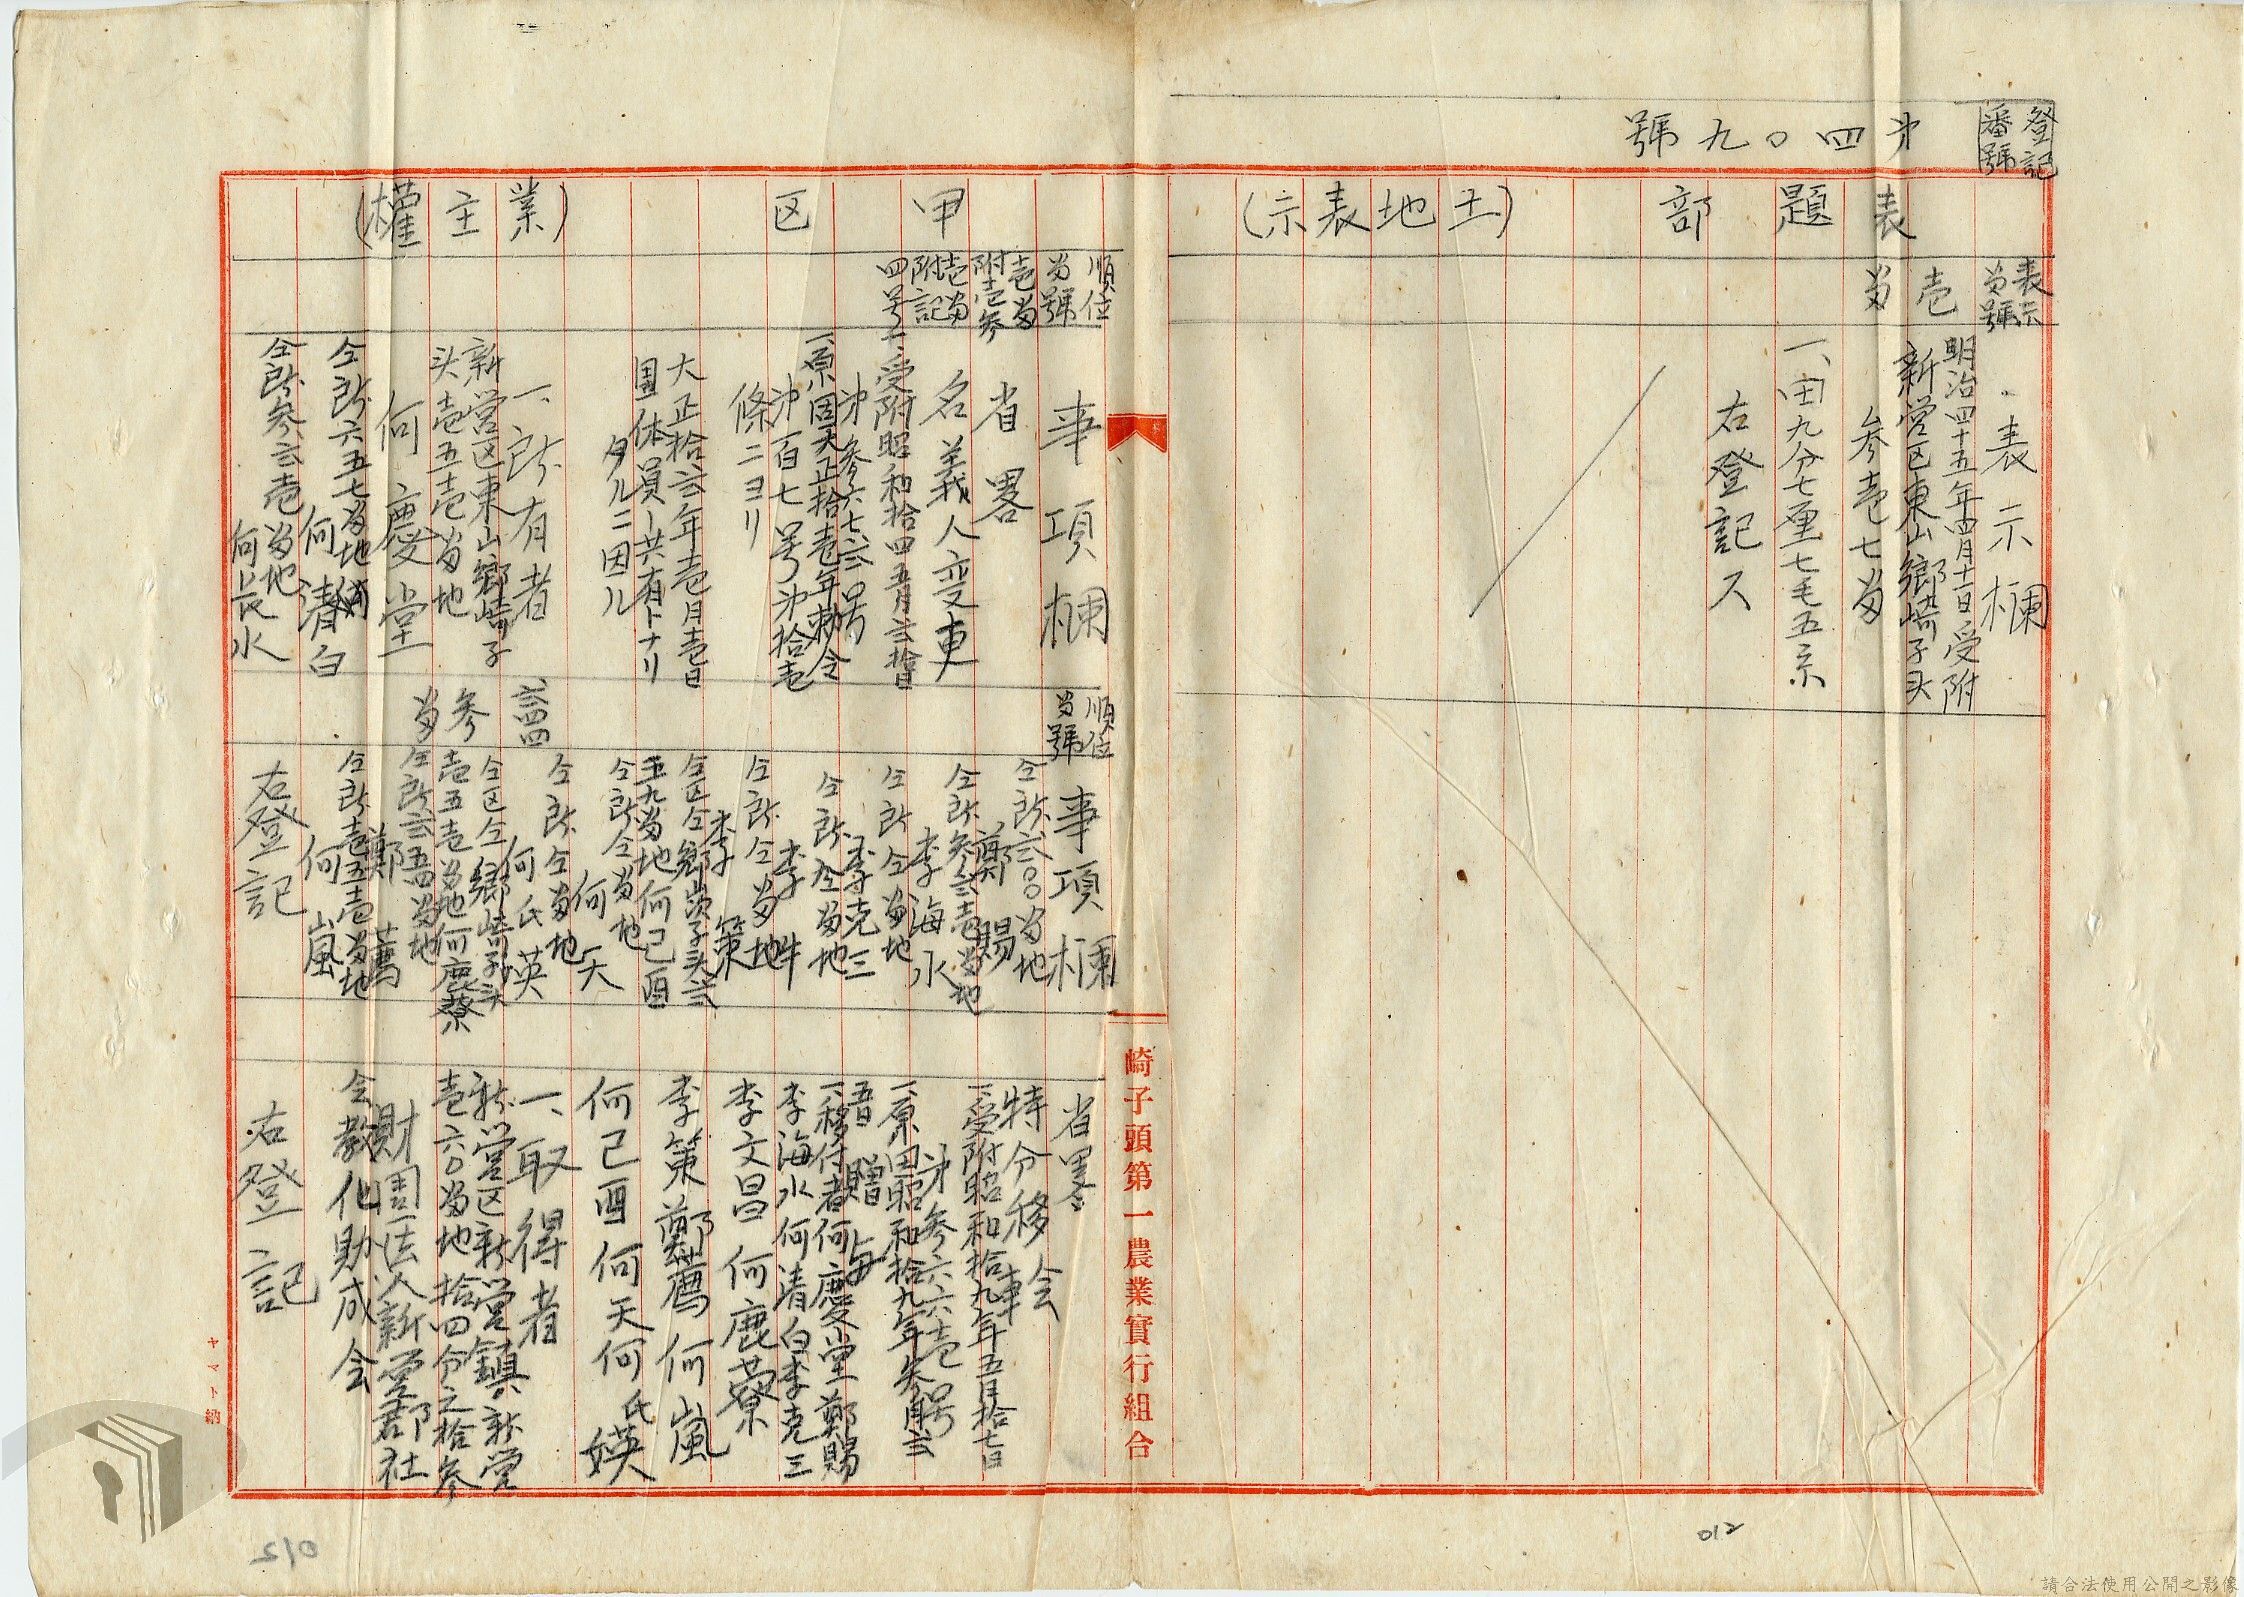 登記
番號
第四〇九號
表題部（土地表示）
表示
番號
壱
番
表示欄
明治四十五年四月十一日受附
新営区東山郷崎子头
参壱七番
一、田九分七厘七毛五糸
右登記ス
甲区（業主權）
順位
番號
壱番
附壱参
壱番
附記
四号
事項欄
省畧
名義人変更
一、受附昭和拾四年五月弍拾日
第参六七弍号
一、原因大正拾壱年勅令
第四百七号第拾壱
條ニヨリ
大正拾弍年壱月壱日
団体員ノ共有トナリ
タルニ因ル
一、所有者
新営区東山郷崎子
头壱五壱番地
何慶堂
仝所六五七番地
何清白
仝所参弍壱番地
何長水
順位
番號
事項欄
仝所弍〇〇番地
鄭賜
仝所参弍壱番地
李海水
仝所仝番地
李克三
仝所仝番地
李牛
仝所仝番地
李策
仝区仝郷崁子头弍
五九番地何己酉
仝所仝番地
何天
仝所仝番地
何氏英
仝区仝郷崎子头
壱五壱番地何鹿藔
仝所弍五四番地
鄭荐
仝所壱五壱番地
何嵐
右登記
参
番
省畧
特分移転
一、受附昭和拾九年五月拾七日
第参六六壱号
一、原因昭和拾九年参月弍
五日贈與
一、移付者何慶堂鄭賜
李海水何清白李克三
李文昌何鹿藔
李策鄭薦何嵐
何己酉何天何氏媖
一、取得者
新営区新営鎮新営
壱六〇番地拾四分之拾参
財団法人新営郡社
会教化助成会
右登記
崎子頭第一農業實行組合
ヤマト納
012
012
請合法使用公開之影像